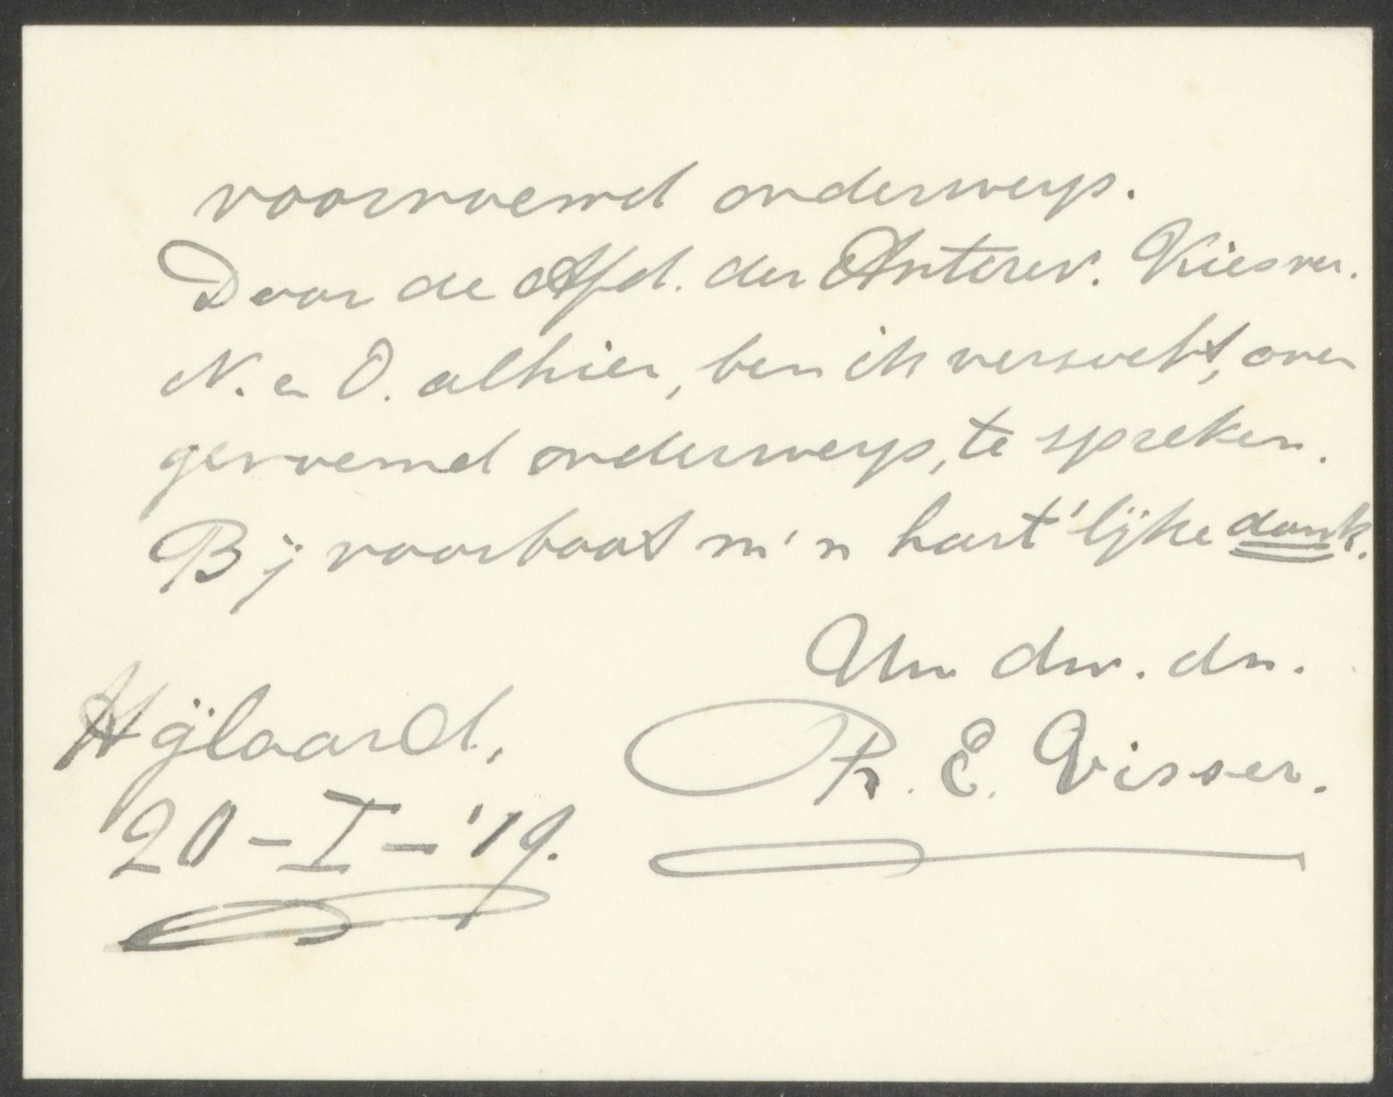 voornoemd onderwerp.
Door de Afd. der Antirev. Kiesver.
N. en O. alhier, ben ik verzocht, over
genoemd onderwerp, te spreken.
Bij voorbaat m'n hart'lijke dank.
Uw dw. dn.
Hijlaard, P. E. Visser.
20-I-'19.